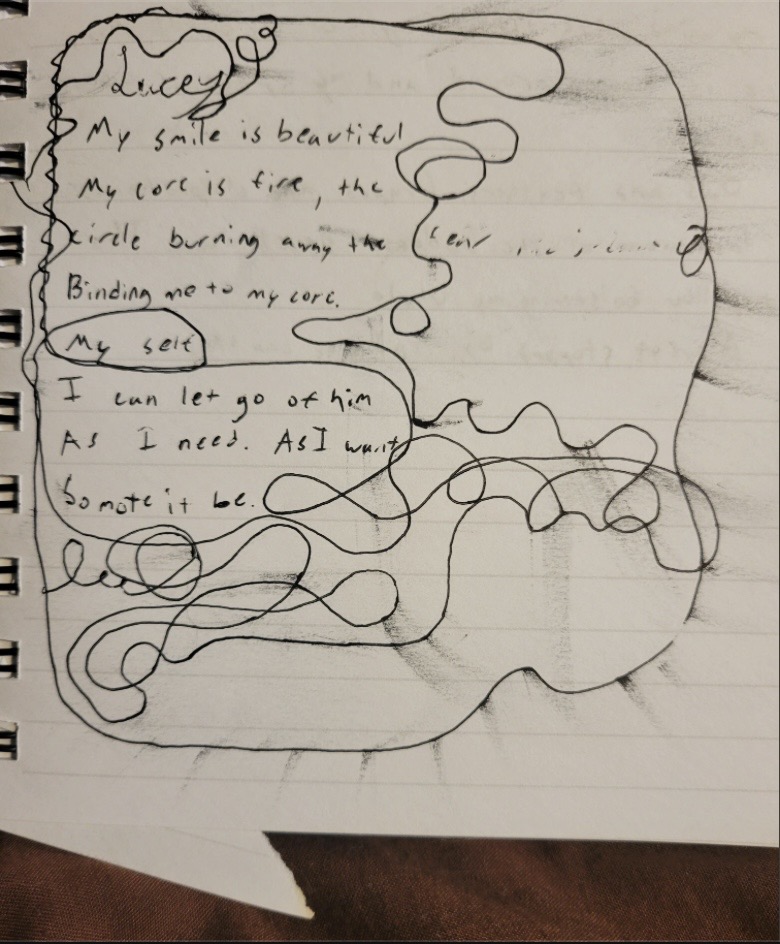 Lucey
My smile is beautiful
My core is fire, the
circle burning away the
Binding me to my core.
My self
I can let go of him
As I need. As I want
So mote it be.